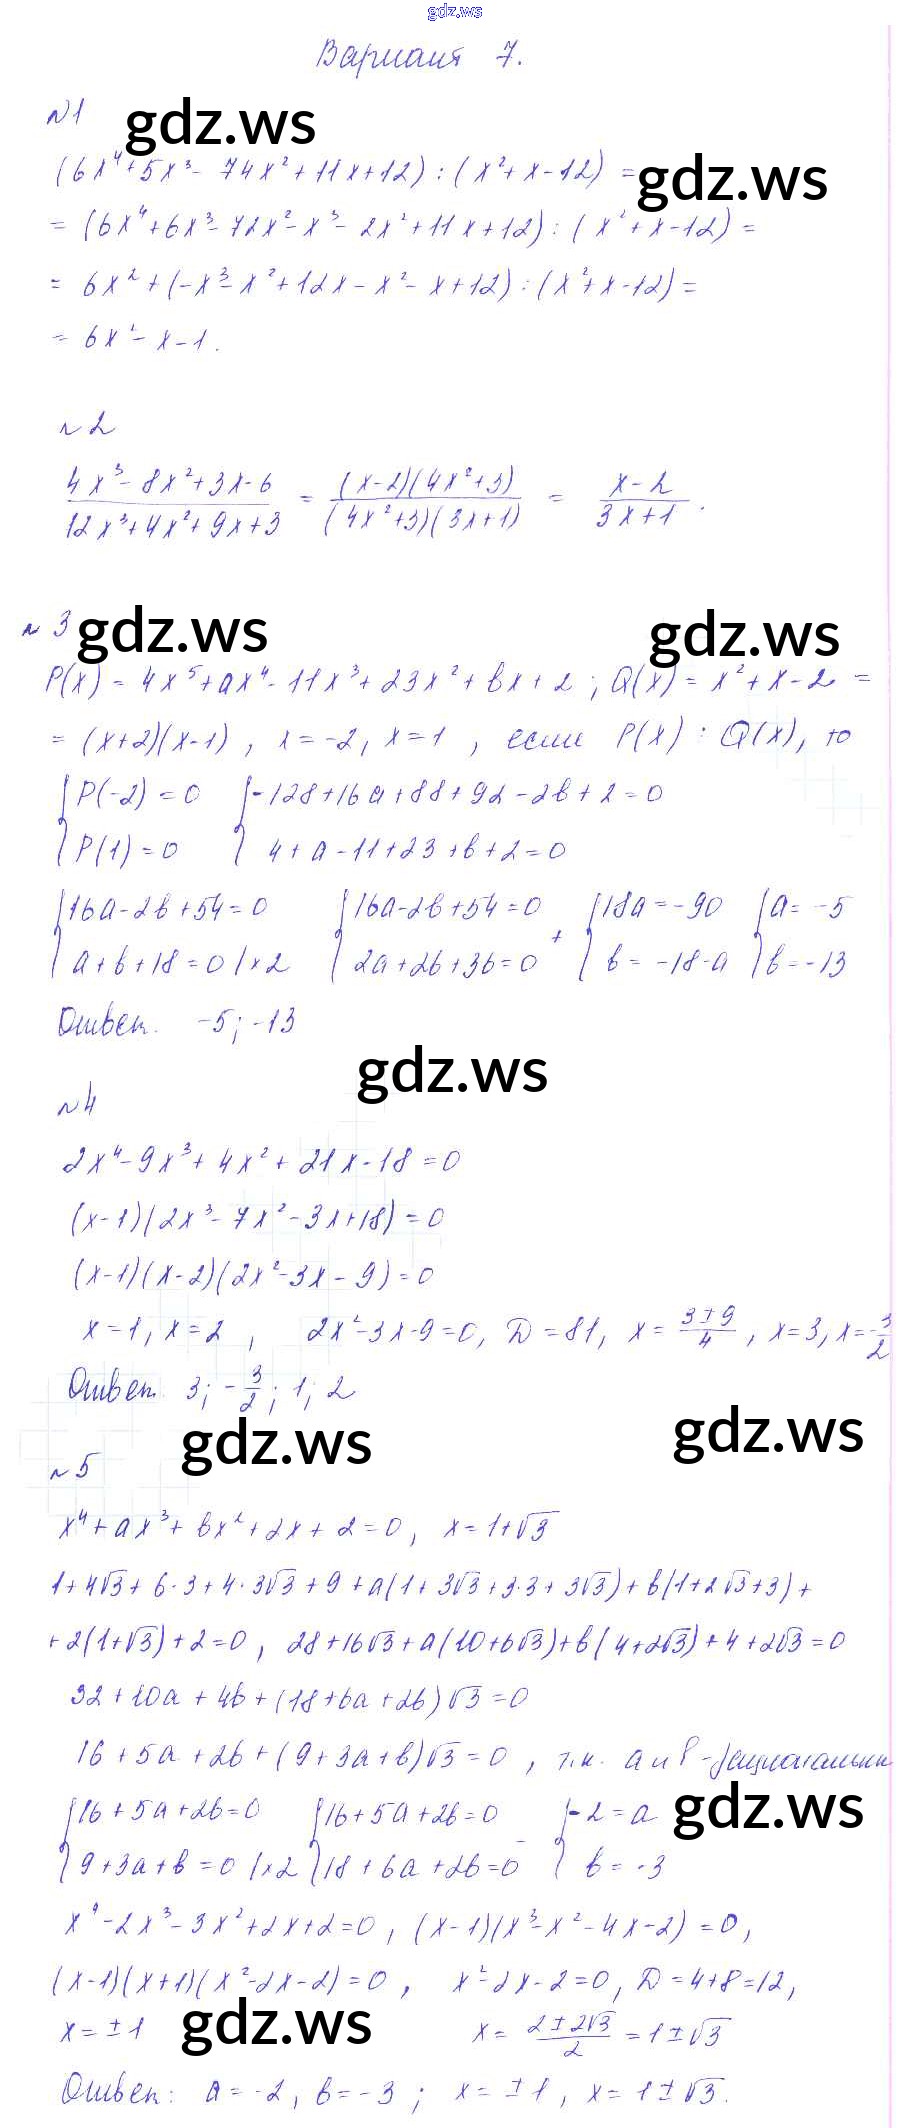 gdz.ws
Вариант 7.
№1
gdz.ws
(6x⁴+5x³-74x²+11x+12):(x²+x-12) =
gdz.ws
= (6x⁴+6x³-72x²-x³-2x²+11x+12):(x²+x-12) =
= 6x²+(-x³-x²+12x-x²-x+12):(x²+x-12) =
= 6x²-x-1.
№2
(4x³-8x²+3x-6)/(12x³+4x²+9x+3) = ((x-2)(4x²+3))/((4x²+3)(3x+1)) = (x-2)/(3x+1).
№3
gdz.ws
gdz.ws
P(x) = 4x⁵+ax⁴-11x³+23x²+bx+2; Q(x) = x²+x-2 =
= (x+2)(x-1), x=-2, x=1, если P(x) : Q(x), то
{P(-2)=0 {-128+16a+88+92-2b+2=0
P(1)=0 4+a-11+23+b+2=0
{16a-2b+54=0 {16a-2b+54=0 {18a=-90 {a=-5
a+b+18=0 |×2 2a+2b+36=0 + b=-18-a b=-13
Ответ: -5; -13
gdz.ws
№4
2x⁴-9x³+4x²+21x-18=0
(x-1)(2x³-7x²-3x+18)=0
(x-1)(x-2)(2x²-3x-9)=0
x=1, x=2, 2x²-3x-9=0, D=81, x=(3±9)/4, x=3, x=-3/2
Ответ: 3; -3/2; 1; 2
gdz.ws
gdz.ws
№5
x⁴+ax³+bx²+2x+2=0, x=1+√3
1+4√3+6·3+4·3√3+9+a(1+3√3+3·3+3√3)+b(1+2√3+3)+
+2(1+√3)+2=0, 28+16√3+a(10+6√3)+b(4+2√3)+4+2√3=0
32+10a+4b+(18+6a+2b)√3=0
16+5a+2b+(9+3a+b)√3=0, т.к. a и b - рациональны
gdz.ws
{16+5a+2b=0 {16+5a+2b=0 {-2=a
9+3a+b=0 |×2 18+6a+2b=0 - b=-3
x⁴-2x³-3x²+2x+2=0, (x-1)(x³-x²-4x-2)=0,
(x-1)(x+1)(x²-2x-2)=0, x²-2x-2=0, D=4+8=12,
x=±1 x=(2±2√3)/2=1±√3
gdz.ws
gdz.ws
Ответ: a=-2, b=-3; x=±1, x=1±√3.